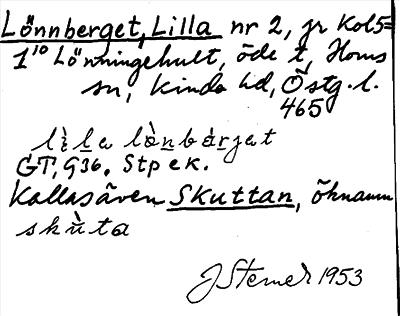 Lönnberget, Lilla nr 2, jr Kol5=
1¹⁰ Lönningehult, öde t, Horns
sn, Kinda hd, Östg. l.
465
lìla lònbárjat
GT, G36. Stp ek.
Kallas även Skuttan, öknamn
skùta
J Sterner 1953